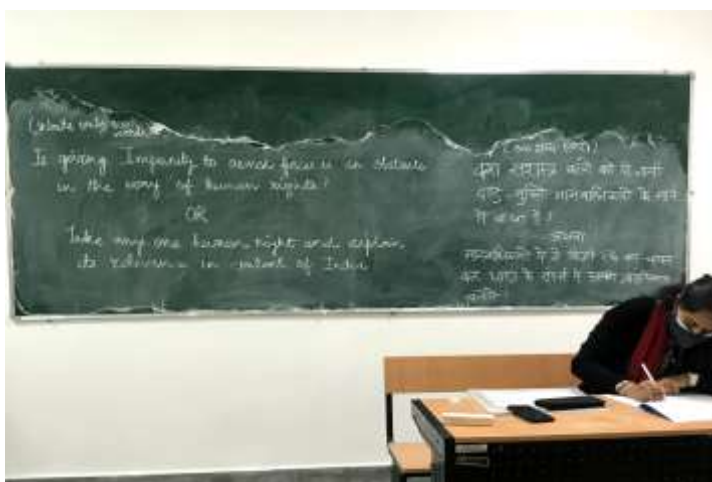 Is giving Impunity to armed forces an obstacle
in the way of human rights?
OR
Take any one human right and explain
its relevance in context of India
क्या सशस्त्र बलों को दी जानी
दण्ड-मुक्ति मानवाधिकारों के
में बाधा है?
अथवा
मानवाधिकारों में से किसी एक का चयन
कर भारत के संदर्भ में उसकी प्रासंगिकता